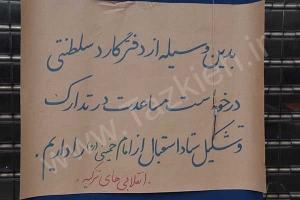 بدین وسیله از دفتر گارد سلطنتی
درخواست مساعدت در تدارک
و تشکیل ستاد استقبال از امام خمینی (ره) را داریم.
انقلابی های ترکیه.
www.Tazkieh.ir